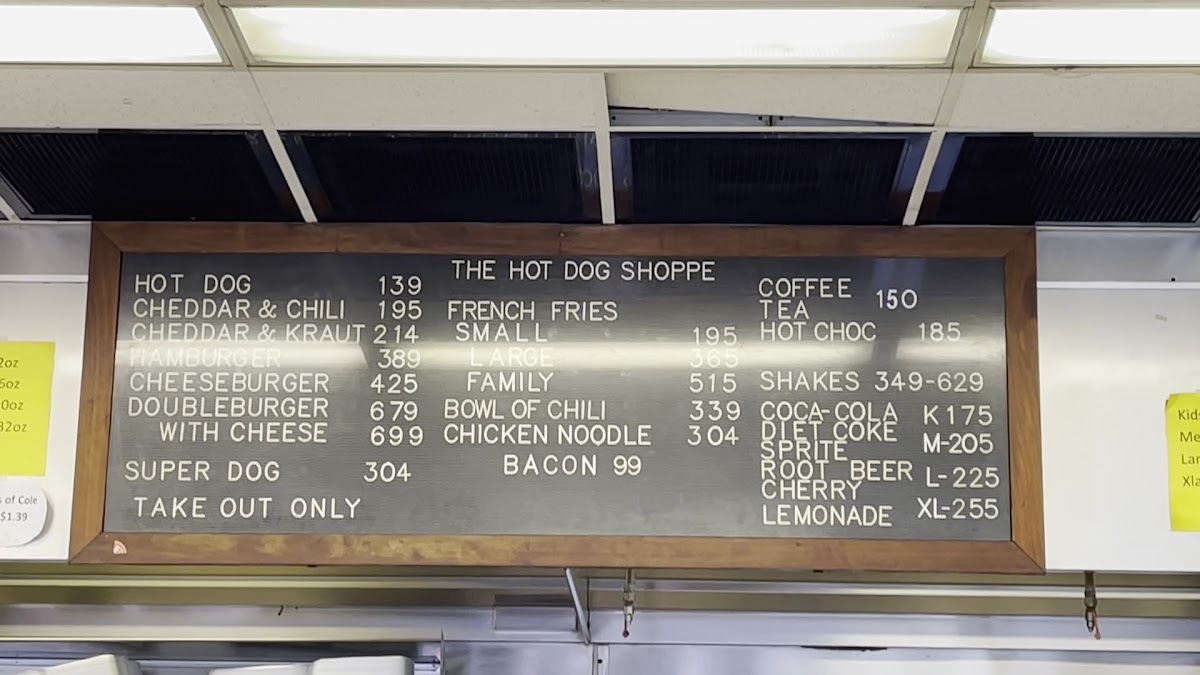 THE HOT DOG SHOPPE
HOT DOG 139
CHEDDAR & CHILI 195
CHEDDAR & KRAUT 214
HAMBURGER 389
CHEESEBURGER 425
DOUBLEBURGER 679
WITH CHEESE 699
SUPER DOG 304
TAKE OUT ONLY
FRENCH FRIES
SMALL 195
LARGE 365
FAMILY 515
BOWL OF CHILI 339
CHICKEN NOODLE 304
BACON 99
COFFEE
TEA 150
HOT CHOC 185
SHAKES 349-629
COCA-COLA K 175
DIET COKE
SPRITE M-205
ROOT BEER L-225
CHERRY
LEMONADE XL-255
2oz
32oz
s of Cole
$1.39
Kids
Me
Lar
Xla